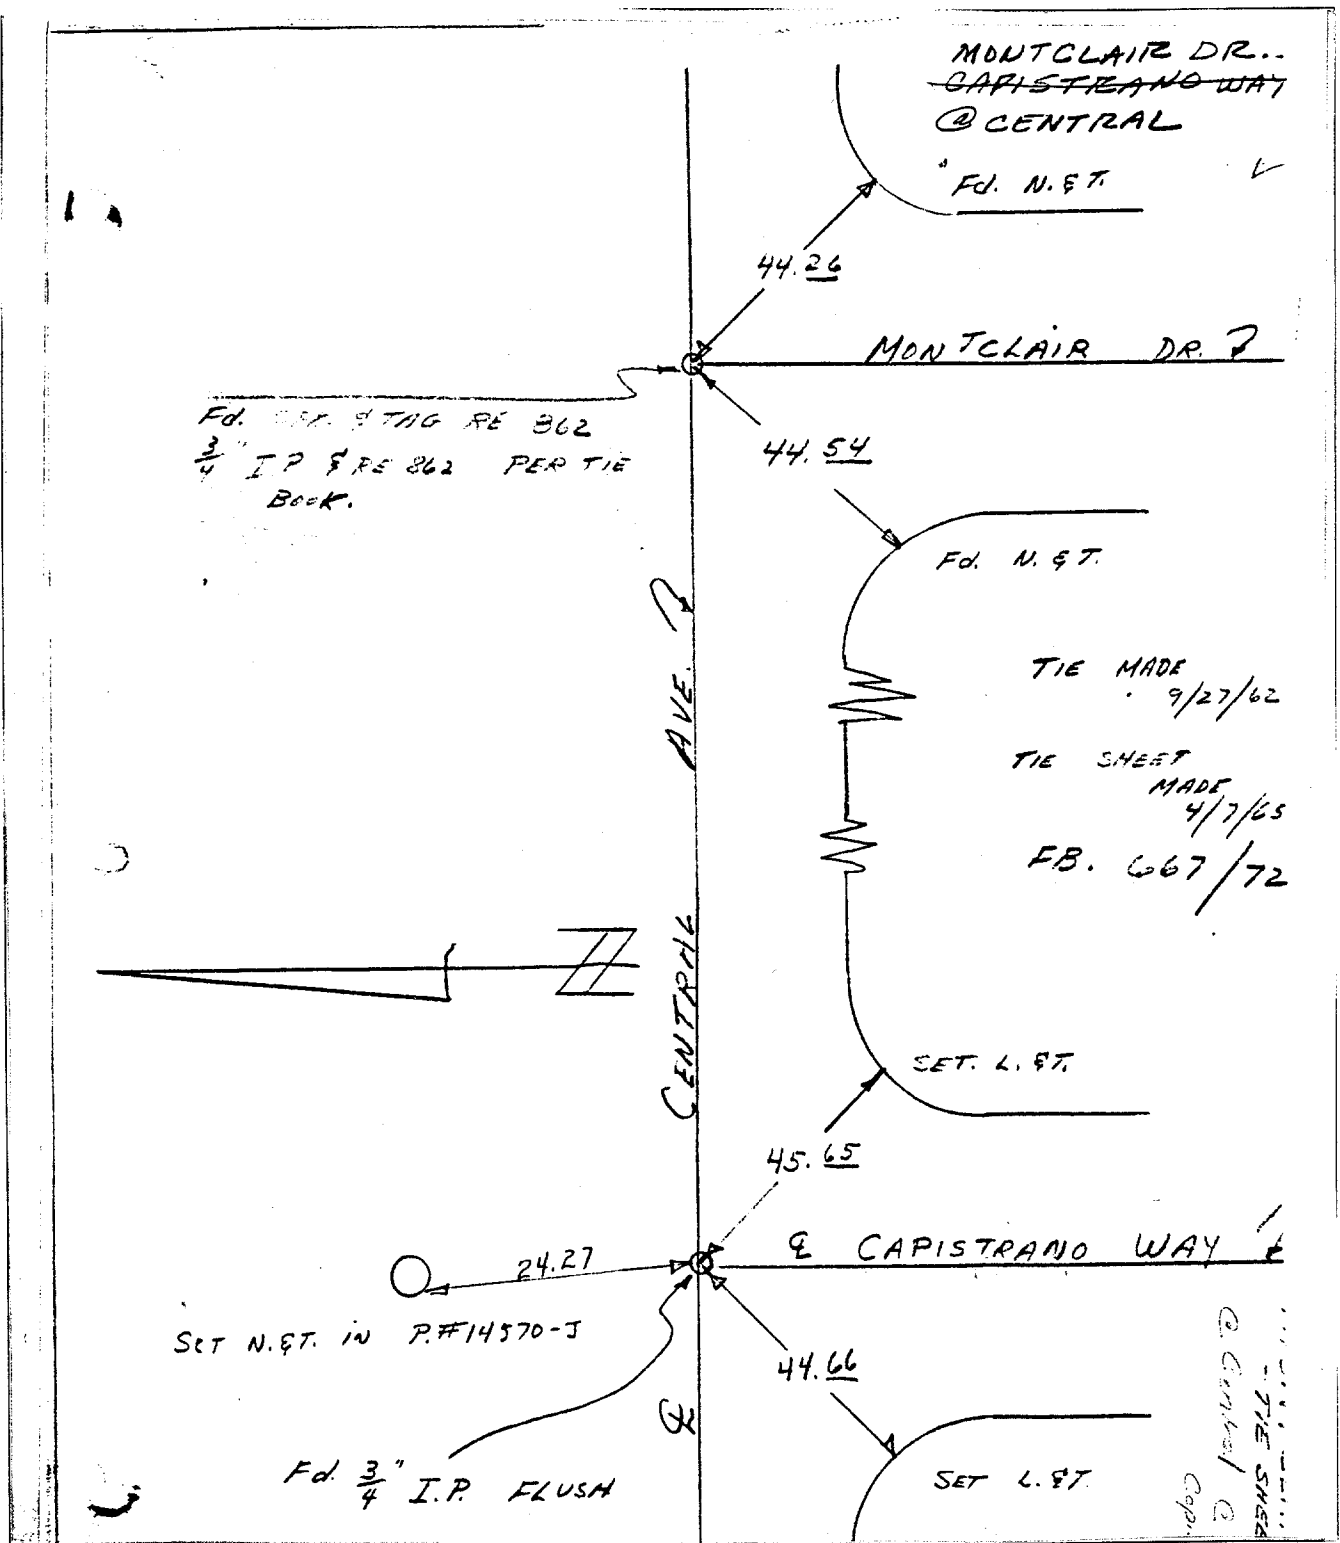 MONTCLAIR DR..
CAPISTRANO WAY
@ CENTRAL
Fd. N. & T.
44.26
MONTCLAIR DR.
Fd. & TAG RE 862
3/4" I.P & RE 862 PER TIE
BOOK.
44.54
Fd. N. & T.
TIE MADE
9/27/62
TIE SHEET
MADE
4/7/65
FB. 667/72
N
℄ CENTRAL AVE.
SET. L. & T.
45.65
℄ CAPISTRANO WAY
24.27
SET N. & T. IN P.#14570-J
44.66
Fd. 3/4" I.P. FLUSH
SET L. & T.
- TIE SHEE
@ Central @
Capi